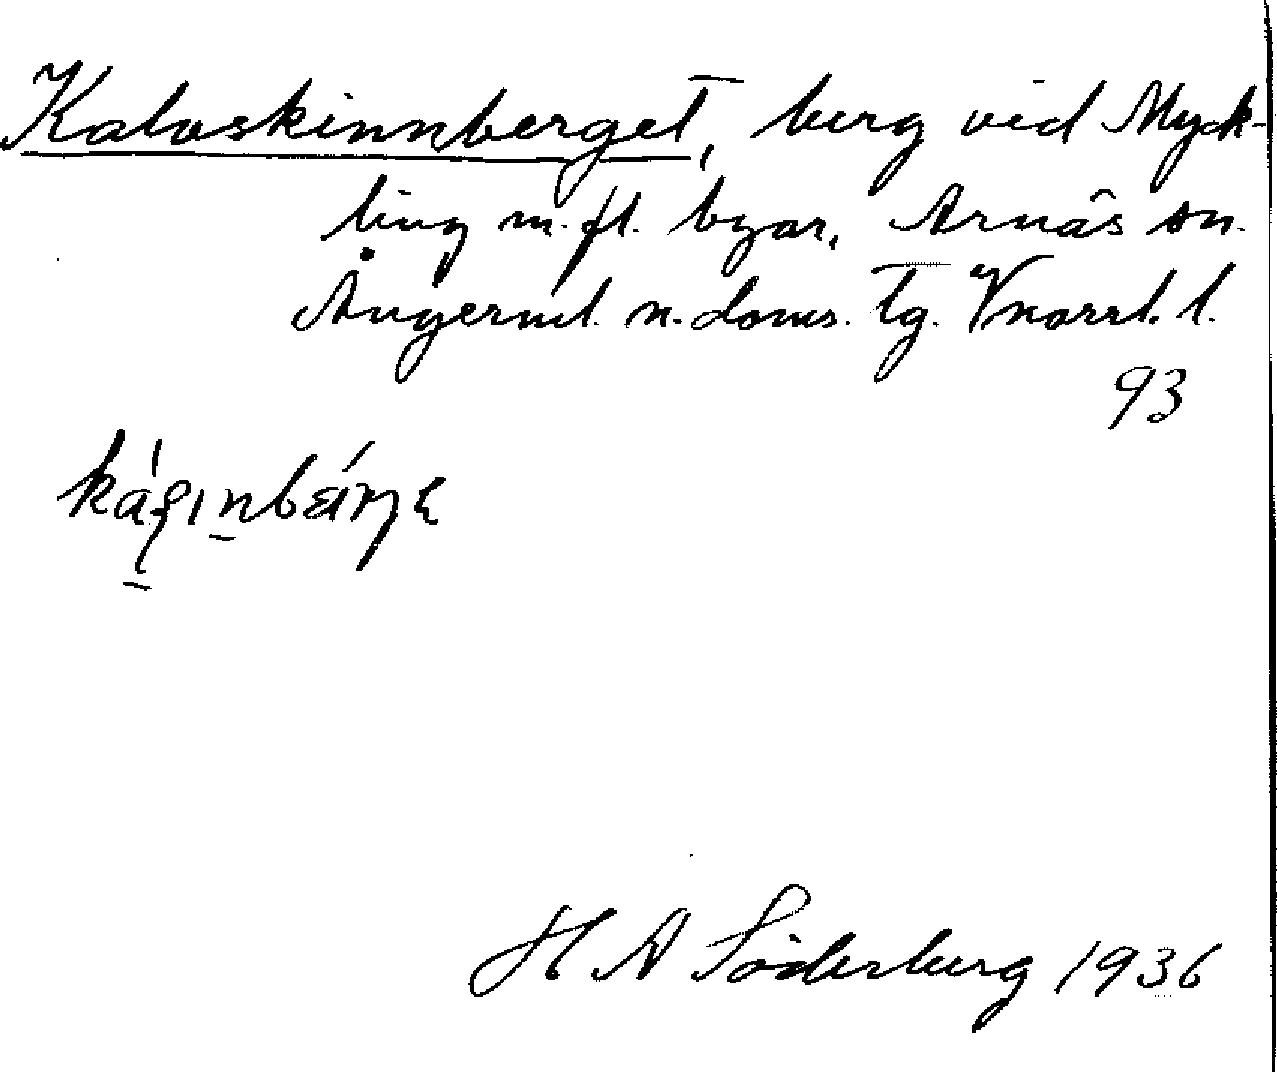 Kalvskinnberget, berg vid Myck-
ling m. fl. byar, Arnäs sn.
Ångerml. n. doms. tg. Vnorrl. l.
93
H A Söderberg 1936